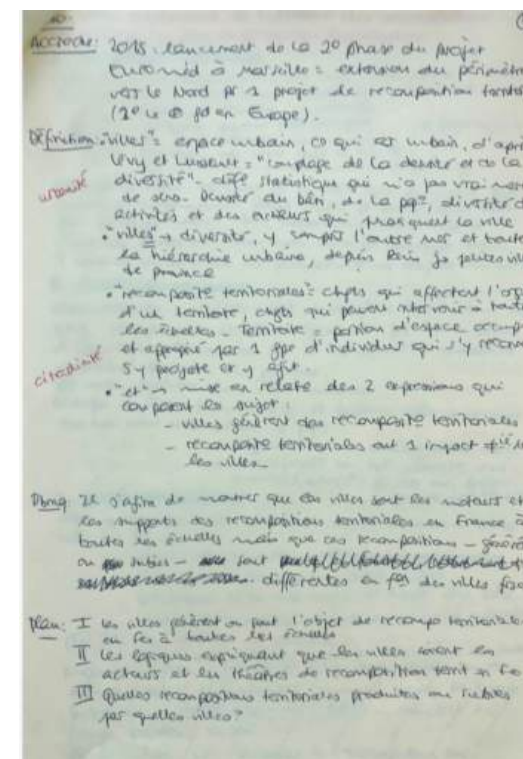 Accroche: 2015: lancement de la 2e phase du projet
Euromed à Marseille = extension du périmètre
vers le Nord pr 1 projet de recomposition territo
(1e le + gd en Europe).
Définition: "villes" = espace urbain, ce qui est urbain, d'apr
Lévy et Lussault = "couplage de la densité et de la
urbanité
diversité". déf° statistique qui n'a pas vraiment
de sens. Densité du bâti, de la pop°, diversité d
activités et des acteurs qui pratiquent la ville
• "villes" → diversité, y compris l'outre mer et toute
la hiérarchie urbaine, depuis Paris jq petites vil
de province
• "recomposit° territoriales" = chgts qui affectent l'org
d'un territoire, chgts qui peuvent intervenir à toute
les échelles. Territoire = portion d'espace occupé
et approprié par 1 gpe d'individus qui s'y reconn
citadinité
s'y projette et y agit.
• "et" → mise en relat° des 2 expressions qui
composent le sujet:
- villes génèrent des recomposit° territoriales
- recomposit° territoriales ont 1 impact
les villes.
Pbmq Il s'agira de montrer que les villes sont les moteurs et
les supports des recompositions territoriales en France à
toutes les échelles mais que ces recompositions - génér
ou subies - sont
différentes en f° des villes
Plan: I Les villes génèrent ou font l'objet de recompo territoriales
en Fce à toutes les échelles
II Les logiques expliquant que les villes soient les
acteurs et les théâtres de recomposition territ en Fce
III Quelles recompositions territoriales produites ou subies
par quelles villes?